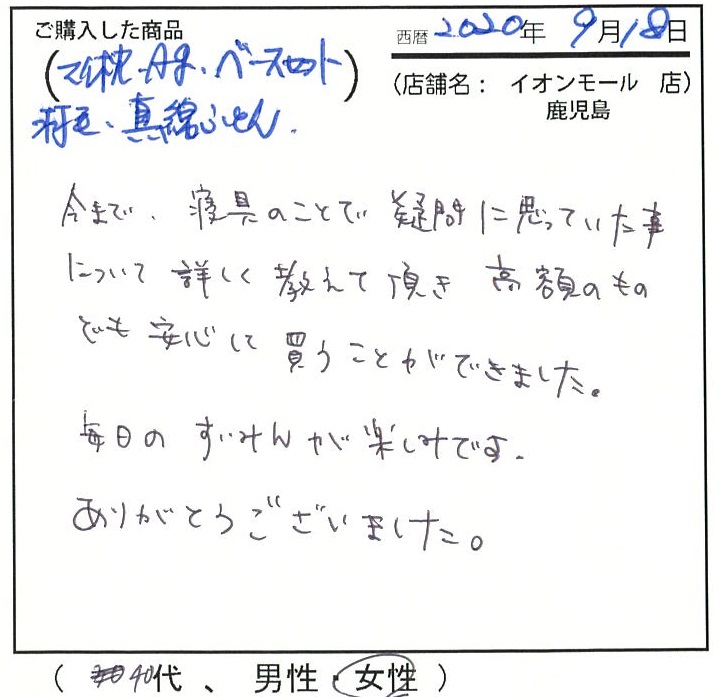 ご購入した商品
西暦 2020年 9月18日
(マイ枕・Ag・ベースセット)
羽毛、真綿ふとん.
(店舗名: イオンモール 店)
鹿児島
今まで、寝具のことで疑問に思っていた事
について 詳しく教えて頂き 高額のもの
でも安心して 買うことができました。
毎日の すいみんが楽しみです.
ありがとうございました。
( 40代 、 男性・女性 )